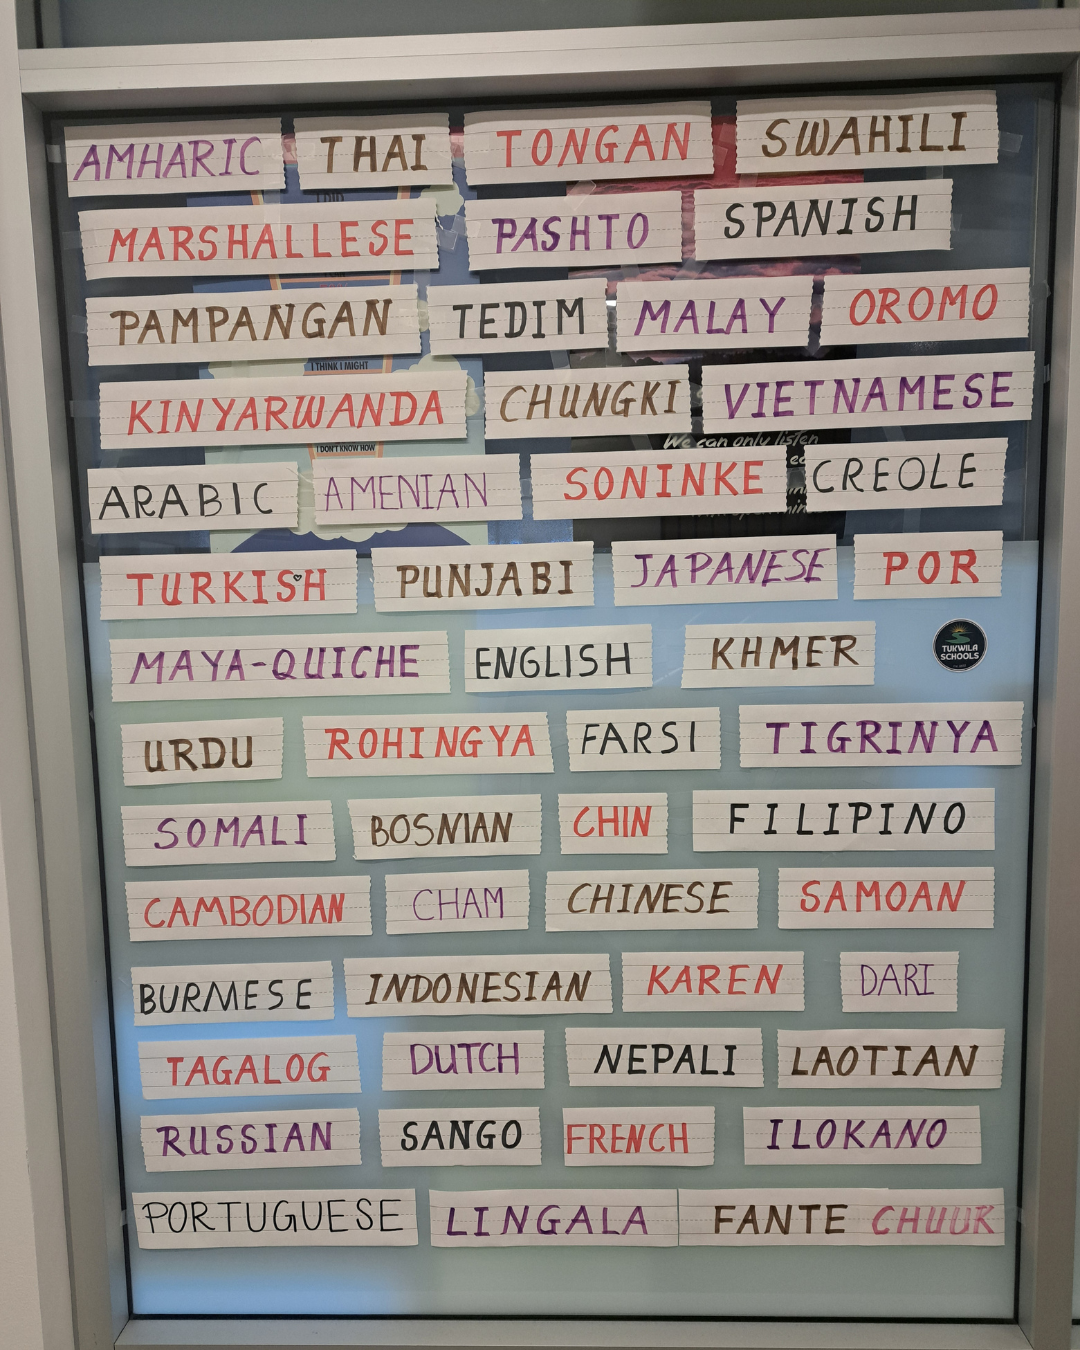 AMHARIC THAI TONGAN SWAHILI
MARSHALLESE PASHTO SPANISH
PAMPANGAN TEDIM MALAY OROMO
I THINK I MIGHT
KINYARWANDA CHUNGKI VIETNAMESE
I DON'T KNOW HOW
We can only listen
ARABIC AMENIAN SONINKE CREOLE
TURKISH PUNJABI JAPANESE POR
MAYA-QUICHE ENGLISH KHMER
TUKWILA
SCHOOLS
URDU ROHINGYA FARSI TIGRINYA
SOMALI BOSNIAN CHIN FILIPINO
CAMBODIAN CHAM CHINESE SAMOAN
BURMESE INDONESIAN KAREN DARI
TAGALOG DUTCH NEPALI LAOTIAN
RUSSIAN SANGO FRENCH ILOKANO
PORTUGUESE LINGALA FANTE CHUUK